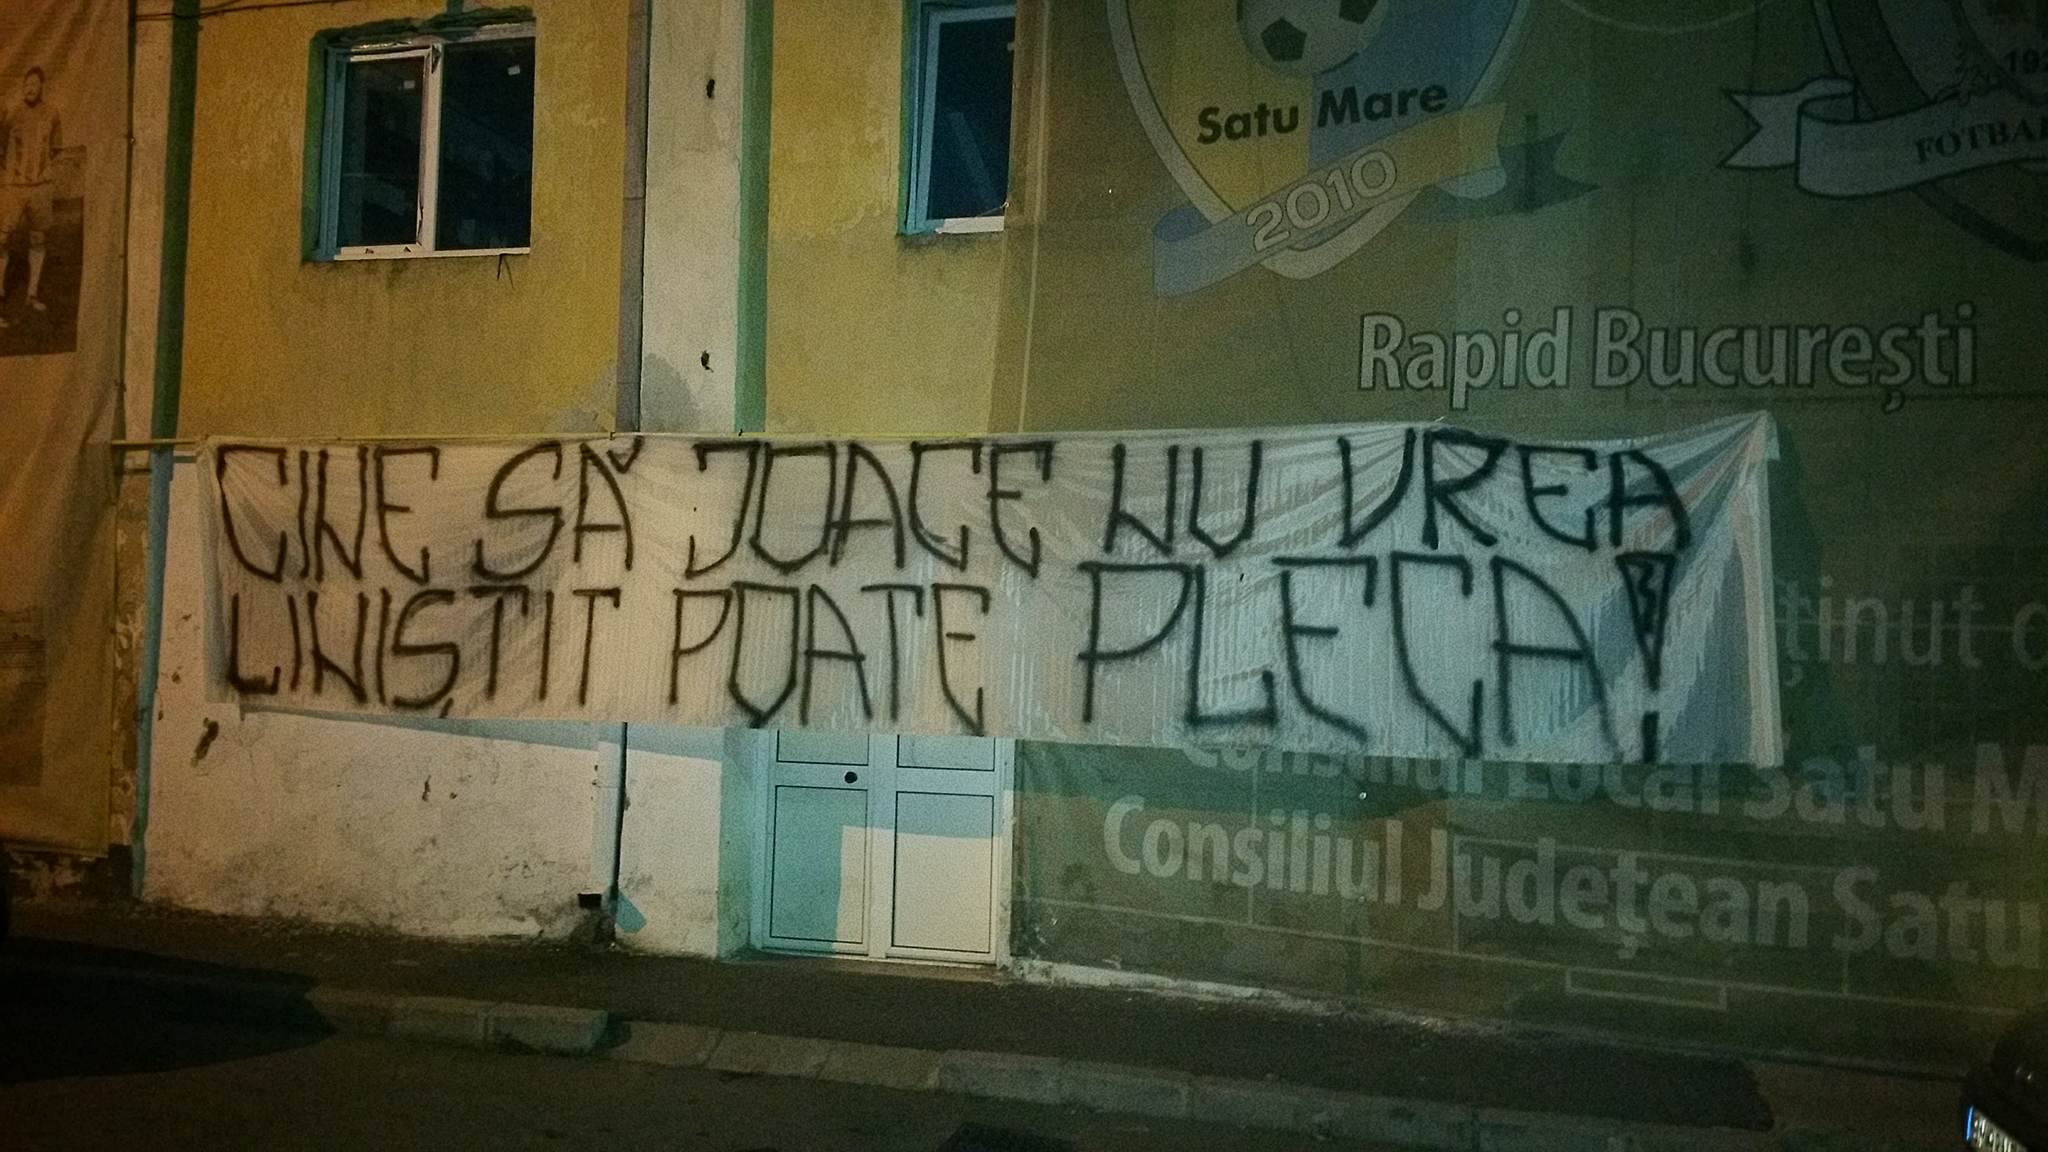 Satu Mare
2010
192
FOTBAL
Rapid București
CINE SĂ JOACE NU VREA
LINIȘTIT POATE PLECA!
ținut
Consiliul Local Satu M
Consiliul Județean Satu